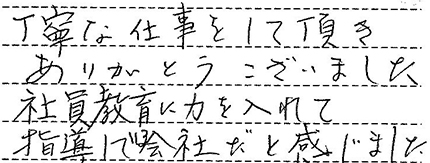 丁寧な仕事をして頂き
ありがとうございました
社員教育に力を入れて
指導して会社だと感じました